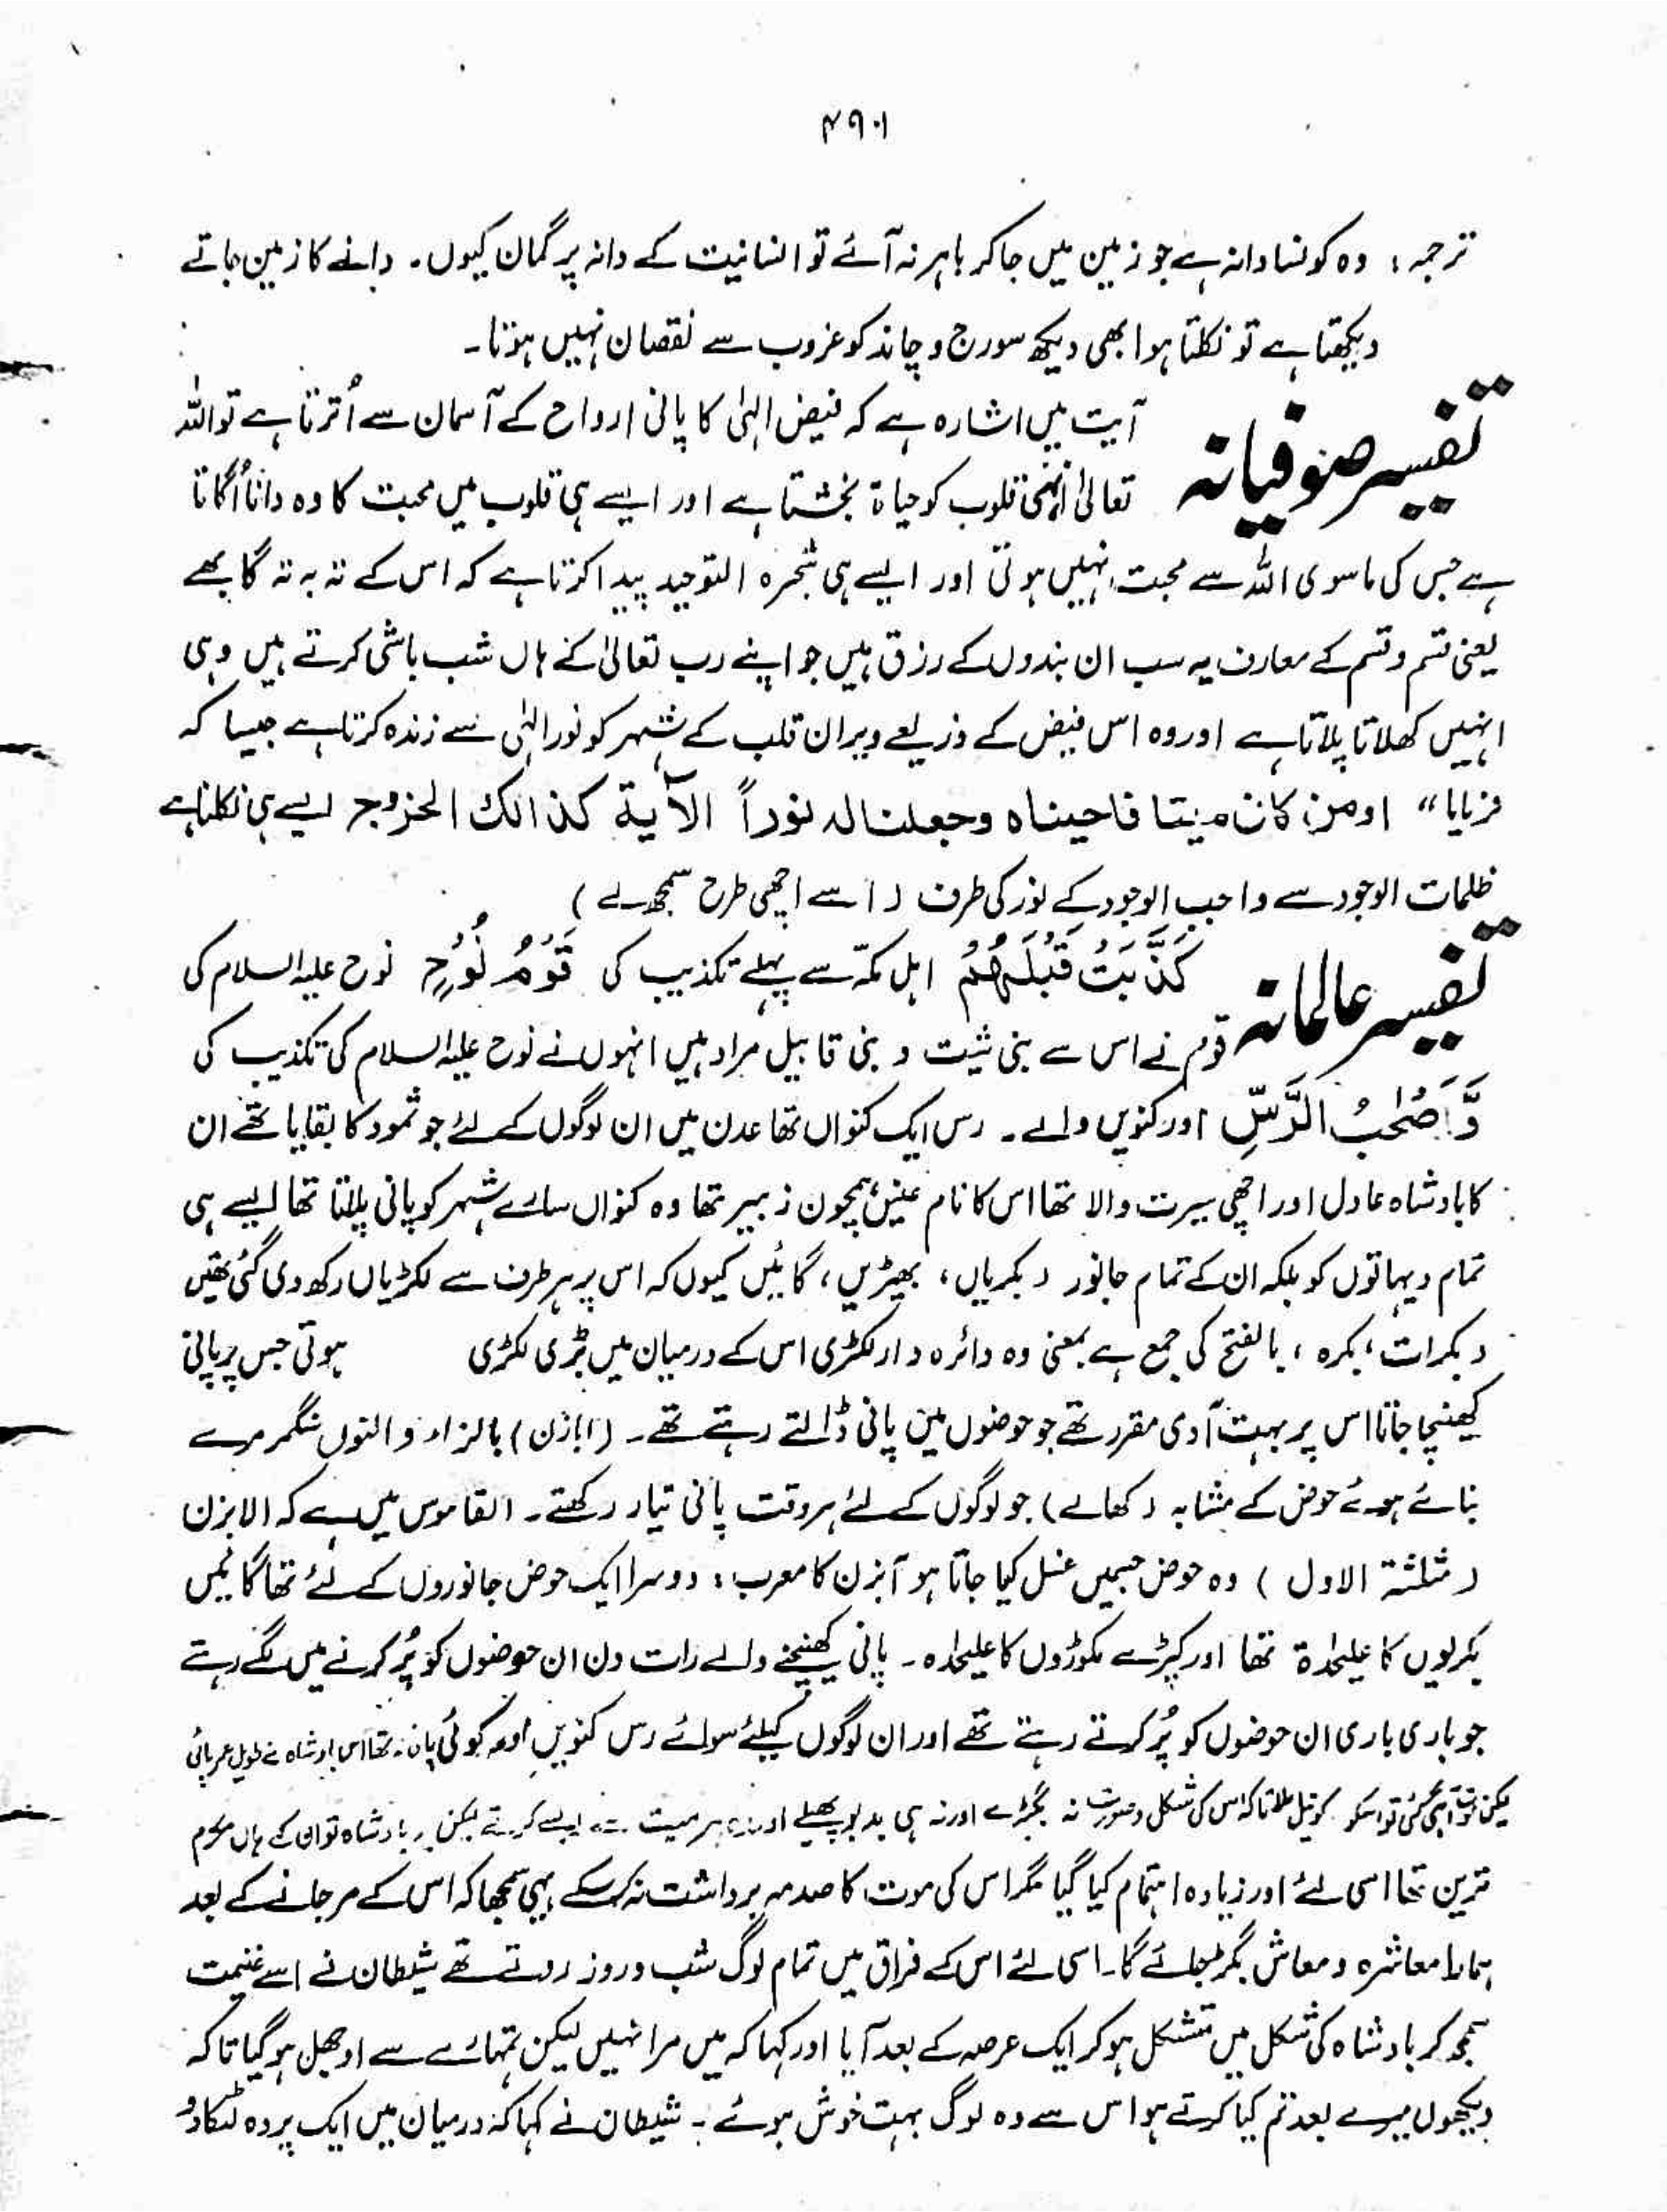 ۴۹۰۱
ترجمہ: وہ کونسا دانہ ہے جو زمین میں جاکر باہر نہ آئے تو انسانیت کے دانہ پر گمان کیوں۔ دانے کا زمین جاتے
دیکھتا ہے تو نکلتا ہوا بھی دیکھ سورج و چاند کو غروب سے نقصان نہیں ہوتا۔
تفسیر صوفیانہ
آیت میں اشارہ ہے کہ فیض الہٰی کا پانی ارواح کے آسمان سے اُترتا ہے تو اللہ
تعالیٰ انہی قلوب کو حیاۃ بخشتا ہے اور ایسے ہی قلوب میں محبت کا وہ دانا اُگاتا
ہے جس کی ماسوی اللہ سے محبت نہیں ہوتی اور ایسے ہی شجرہ التوحید پیدا کرتا ہے کہ اس کے تہ بہ تہ گابھے
یعنی قسم و قسم کے معارف یہ سب ان بندوں کے رزق ہیں جو اپنے رب تعالیٰ کے ہاں شب باشی کرتے ہیں وہی
انہیں کھلاتا پلاتا ہے اور وہ اس فیض کے ذریعے ویران قلب کے شہر کو نور الہٰی سے زندہ کرتا ہے جیسا کہ
فرمایا " اومن کان میتا فاحیناہ وجعلنا لہ نوراً الآیۃ کذالک الخروج ایسے ہی نکلنا ہے
ظلمات الوجود سے واجب الوجود کے نور کی طرف (اسے اچھی طرح سمجھ لے)
تفسیر عالمانہ
كَذَّبَتْ قَبْلَهُمْ اہل مکہّ سے پہلے تکذیب کی قَوْمُ نُوْحٍ نوح علیہ السلام کی
قوم نے اس سے بنی شیث و بنی قابیل مراد ہیں انہوں نے نوح علیہ السلام کی تکذیب کی
وَّاَصْحٰبُ الرَّسِّ اور کنویں والے۔ رس ایک کنواں تھا عدن میں ان لوگوں کے لئے جو ثمود کا بقایا تھے ان
کا بادشاہ عادل اور اچھی سیرت والا تھا اس کا نام ہمچون زبیر تھا وہ کنواں سارے شہر کو پانی پلاتا تھا ایسے ہی
تمام دیہاتوں کو بلکہ ان کے تمام جانور (بکریاں، بھیڑیں، گائیں کیوں کہ اس پر ہر طرف سے لکڑیاں رکھ دی گئی تھیں
(بکرات، بکرہ، بالفتح کی جمع ہے بمعنی وہ دائرہ دار لکڑی اس کے درمیان میں بڑی لکڑی ہوتی جس پر پانی
کھینچا جاتا اس پر بہت آدمی مقرر تھے جو حوضوں میں پانی ڈالتے رہتے تھے۔ (ابازن) بالزاء و النون سنگمرمر سے
بنائے ہوئے حوض کے مشابہ (کھالے) جو لوگوں کے لئے ہر وقت پانی تیار رکھتے۔ القاموس میں ہے کہ الابزن
(مثلثۃ الاول) وہ حوض جسمیں غسل کیا جاتا ہو آبزن کا معرب، دوسرا ایک حوض جانوروں کے لئے تھا گائیں
بکریوں کا علیحدۃ تھا اور کیڑے مکوڑوں کا علیحدہ۔ پانی کھینچنے والے رات دن ان حوضوں کو پُر کرنے میں لگے رہتے
جو باری باری ان حوضوں کو پُر کرتے رہتے تھے اور ان لوگوں کیلئے سوائے رس کنویں اور کوئی پانی نہ تھا اس بادشاہ نے طویل عمر پائی
لیکن موت آہی گئی تو اسکو کو تیل ملا تاکہ اس کی شکل و صورت نہ بگڑے اور نہ ہی بدبو پھیلے اور ہر میت سے ایسے کرتے لیکن بادشاہ تو ان کے ہاں مکرم
ترین تھا اسی لئے اور زیادہ اہتمام کیا گیا مگر اس کی موت کا صدمہ برداشت نہ کرسکے یہی سمجھا کہ اس کے مر جانے کے بعد
ہمارا معاشرہ و معاش بگڑ جائے گا۔ اسی لئے اس کے فراق میں تمام لوگ شب و روز روتے تھے شیطان نے اسے غنیمت
سمجھ کر بادشاہ کی شکل میں متشکل ہوکر ایک عرصہ کے بعد آیا اور کہا کہ میں مرا نہیں لیکن تمہارے سے اوجھل ہو گیا تاکہ
دیکھوں میرے بعد تم کیا کرتے ہو اس سے وہ لوگ بہت خوش ہوئے۔ شیطان نے کہا کہ درمیان میں ایک پردہ لٹکا دو